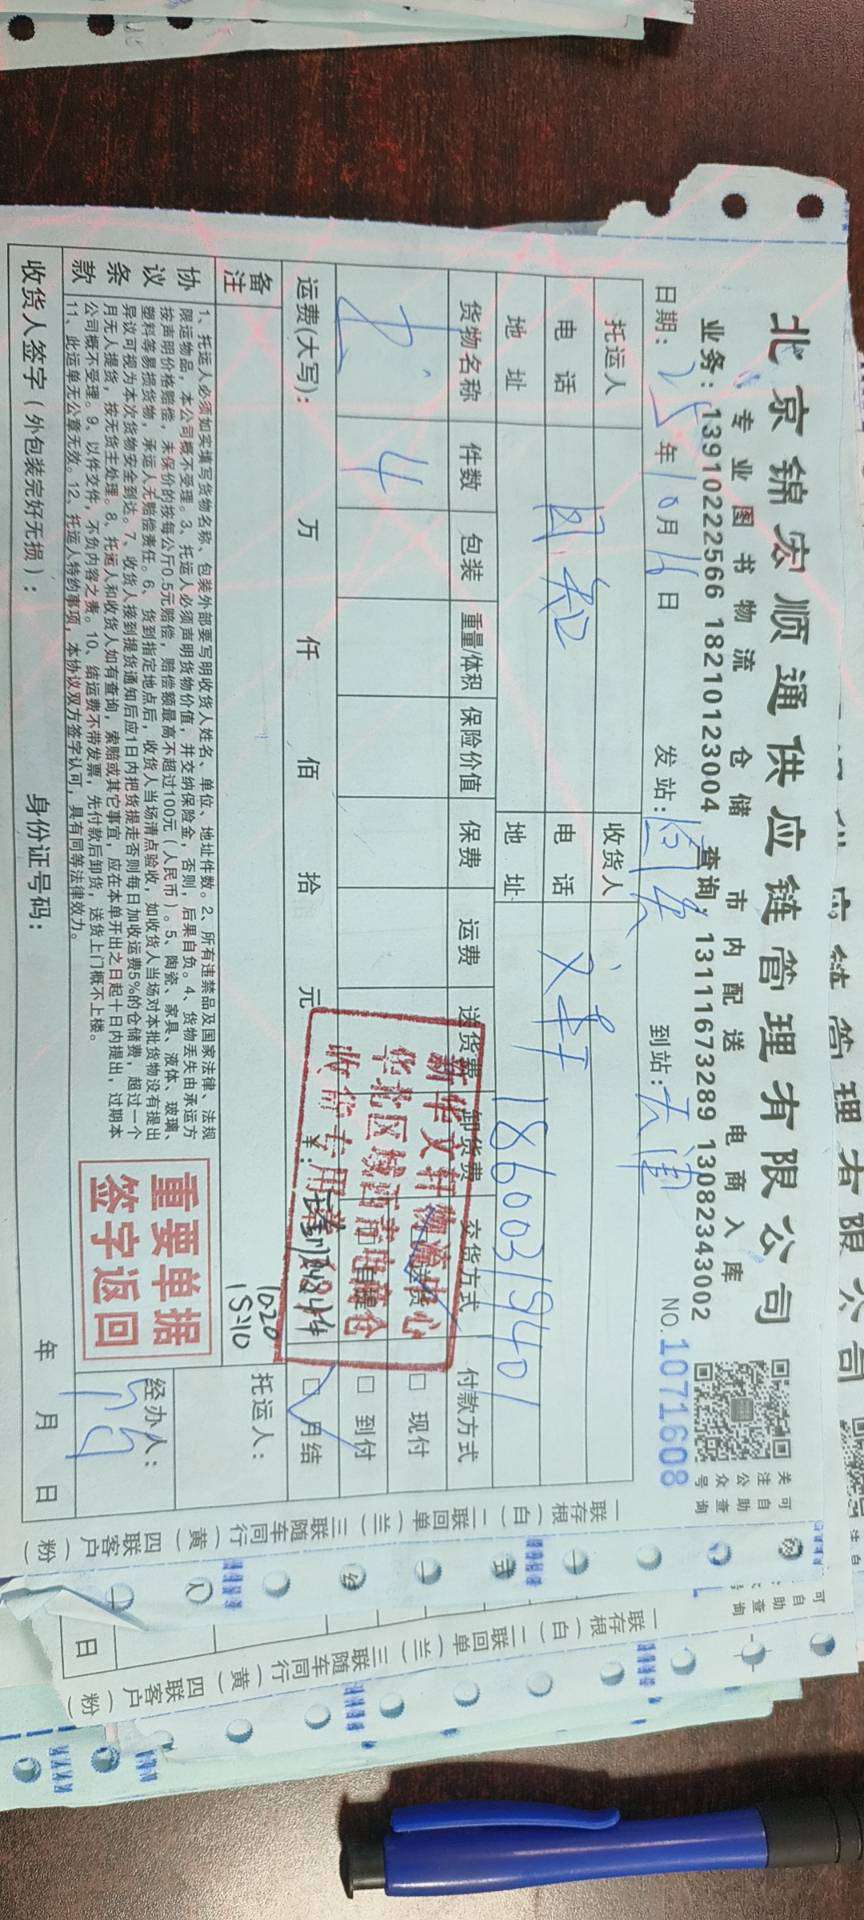 北京锦宏顺通供应链管理有限公司
专业图书物流 仓储 市内配送 电商入库
业务：13910222566 18210123004 查询：13111673289 13082343002
关注公众号
可自助查询
日期：25年10月16日 发站： 到站：天津 NO.1071608
托运人 收货人
电话 电话
地址 地址 18600315401
文轩
货物名称 件数 包装 重量/体积 保险价值 保费 运费 送货费 卸货费 交货方式 付款方式
4
送货 □ 现付
自提 □ 到付
运费(大写)： 万 仟 佰 拾 元 ¥： □ 月结
新华文轩物流中心
收货专用章
备注
10-20
15-10
托运人：
协议条款
1、托运人必须如实填写货物名称、包装外部要写明收货人姓名、单位、地址件数。2、所有违禁品及国家法律、法规
限运物品，本公司概不受理。3、托运人必须声明货物价值，并交纳保险金，否则，后果自负。4、货物丢失由承运方
按声明价格赔偿，未保价的按每公斤0.5元赔偿，赔偿额最高不超过100元（人民币）。5、陶瓷、家具、液体、玻璃、
塑料等易损货物，承运人无赔偿责任。6、货到指定地点后，收货人当场清点验收，如收货人当场对本批货物没有提出
异议可视为本次货物安全到达。7、收货人接到提货通知后应1日内把货提走否则每日加收运费5%的仓储费，超过一个
月无人提货，按无货主处理。8、托运人和收货人如有查询，索赔或其它事宜，应在本单开出之日起十日内提出，过期本
公司概不受理。9、以件交件，不负内容之责。10、结运费不带发票，先付款后卸货，送货上门概不上楼。
11、此运单无公章无效。12、托运人特约事项，本协议双方签字认可，具有同等法律效力。
重要单据
签字返回
经办人：
收货人签字（外包装完好无损）： 身份证号码： 年 月 日
一联存根（白）二联回单（兰）三联随车同行（黄）四联客户（粉）
一联存根（白）二联回单（兰）三联随车同行（黄）四联客户（粉）